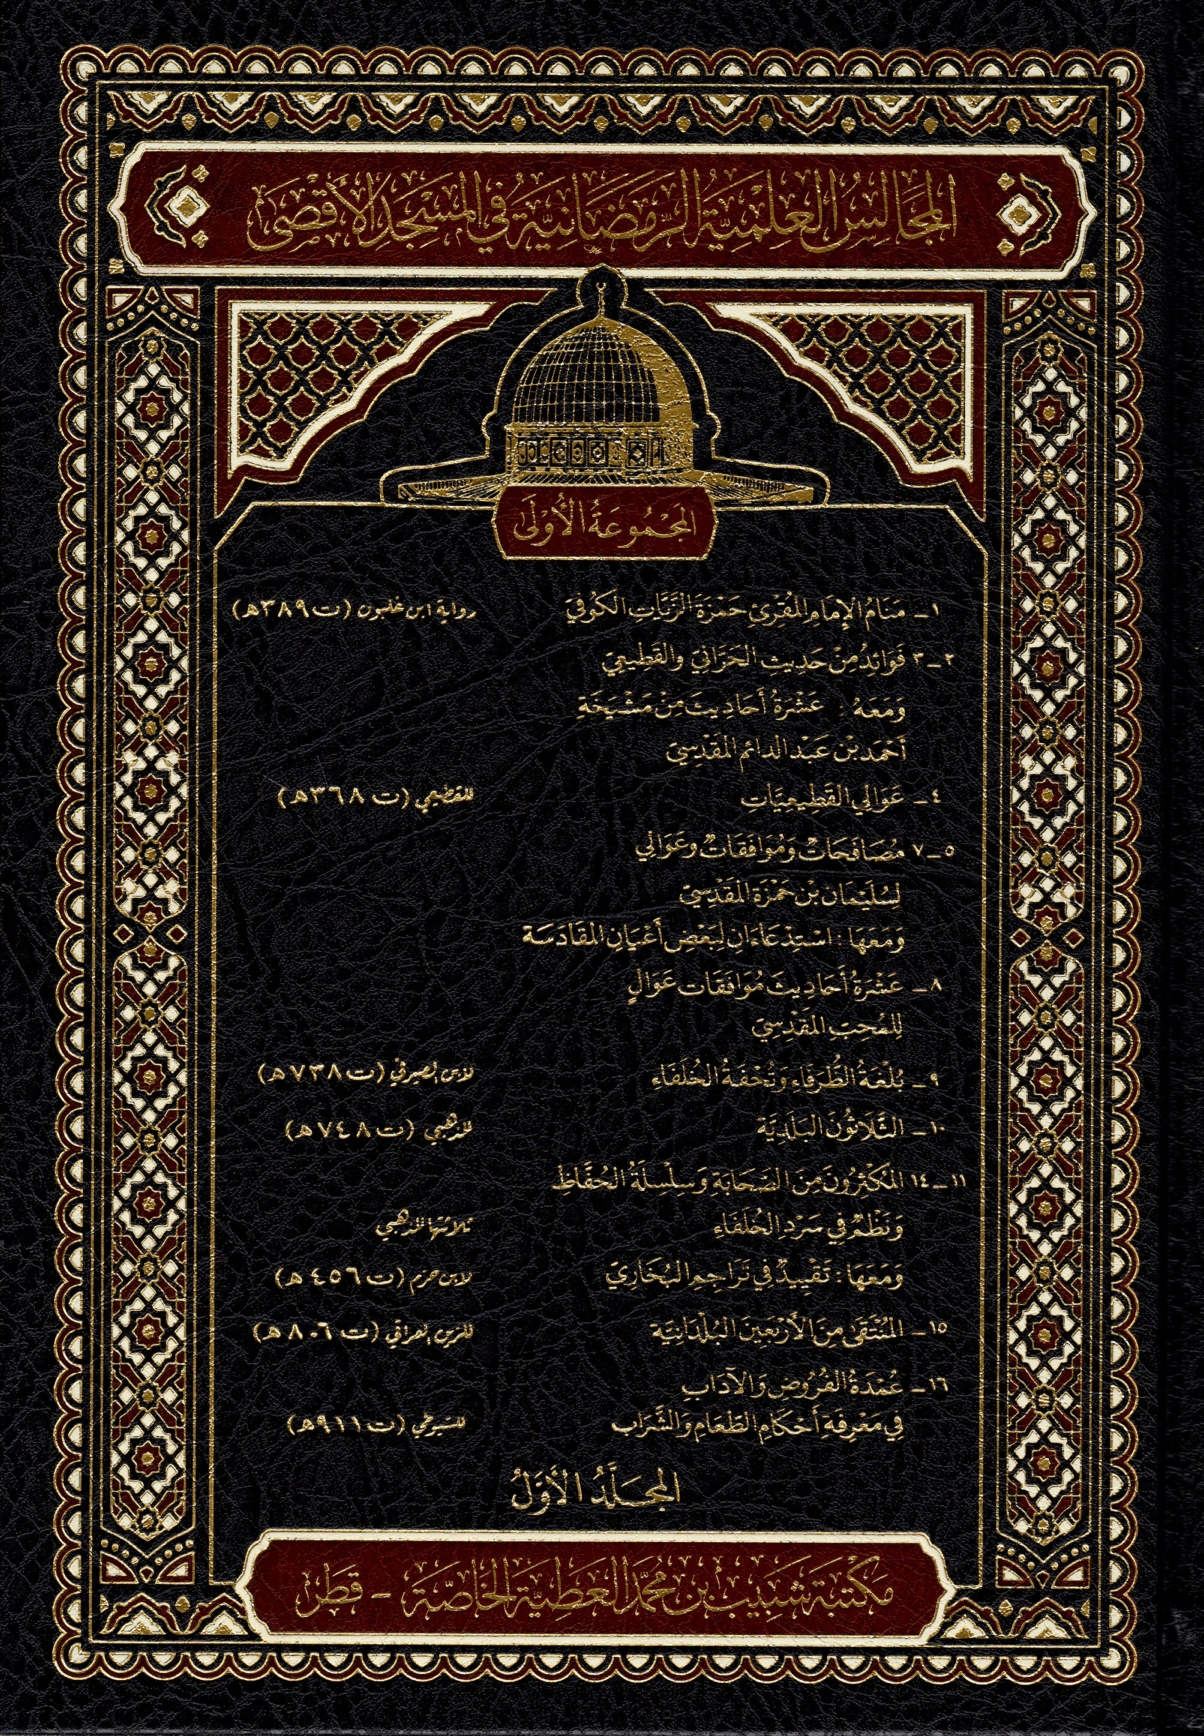 المجَالِسُ العِلْمِيَّةُ الرَّمَضَانِيَّة في المَسْجِدِ الأَقْصَى
المَجْمُوعَةُ الأُوْلَى
١ـ مَنَامُ الإِمَامِ المُقْرِئِ حَمْزَةَ الزَّيَّاتِ الكُوفِيِّ رواية ابن غلبون (ت ٣٨٩هـ)
٢ـ٣ فَوَائِدُ مِنْ حَدِيثِ الحَرَّانِيِّ والقَطِيعِيِّ
وَمَعَهُ : عَشْرَةُ أَحَادِيثَ مِنْ مَشْيَخَةِ
أَحْمَدَ بْنِ عَبْدِ الدائمِ المَقْدِسِيِّ
٤ـ عَوَالِي القَطِيعِيَّاتِ للقطيعي (ت ٣٦٨هـ)
٥ـ٧ مُصَافَحَاتٌ وَمُوَافَقَاتٌ وعَوَالِي
لِسُلَيْمَان بْنِ حَمْزَة المَقْدِسِيِّ
وَمَعَهَا : اسْتِدْعَاءَانِ لِبَعْضِ أَعْيَانِ المَقَادِسَة
٨ـ عَشْرَةُ أَحَادِيثَ مُوَافَقَات عَوَالٍ
لِلمُحِبِّ المَقْدِسِيِّ
٩ـ بُلْغَةُ الظُّرَفَاءِ وَتُحْفَةُ الخُلَفَاءِ لابن الصيرفي (ت ٧٣٨هـ)
١٠ـ الثَّلَاثُونَ البَلَدِيَّة للذهبي (ت ٧٤٨هـ)
١١ـ١٤ المُكْثِرُونَ مِنَ الصَّحَابَةِ وَسِلْسِلَةُ الحُفَّاظِ
وَنَظْمٌ فِي سَرْدِ الخُلَفَاءِ ثلاثتها للذهبي
وَمَعَهَا : تَقْيِيدٌ فِي تَرَاجِمِ البُخَارِيِّ لابن حزم (ت ٤٥٦هـ)
١٥ـ المُنْتَقَى مِنَ الأَرْبَعِينَ البُلْدَانِيَّة للزين العراقي (ت ٨٠٦هـ)
١٦ـ عُمْدَةُ الفُرُوضِ وَالآدَابِ
فِي مَعْرِفَةِ أَحْكَامِ الطَّعَامِ وَالشَّرَابِ للسيوطي (ت ٩١١هـ)
المُجَلَّدُ الأَوَّلُ
مَكْتَبَة شَبِيب بْن مُحَمَّد العَطِيَّة الخَاصَّة - قَطَر